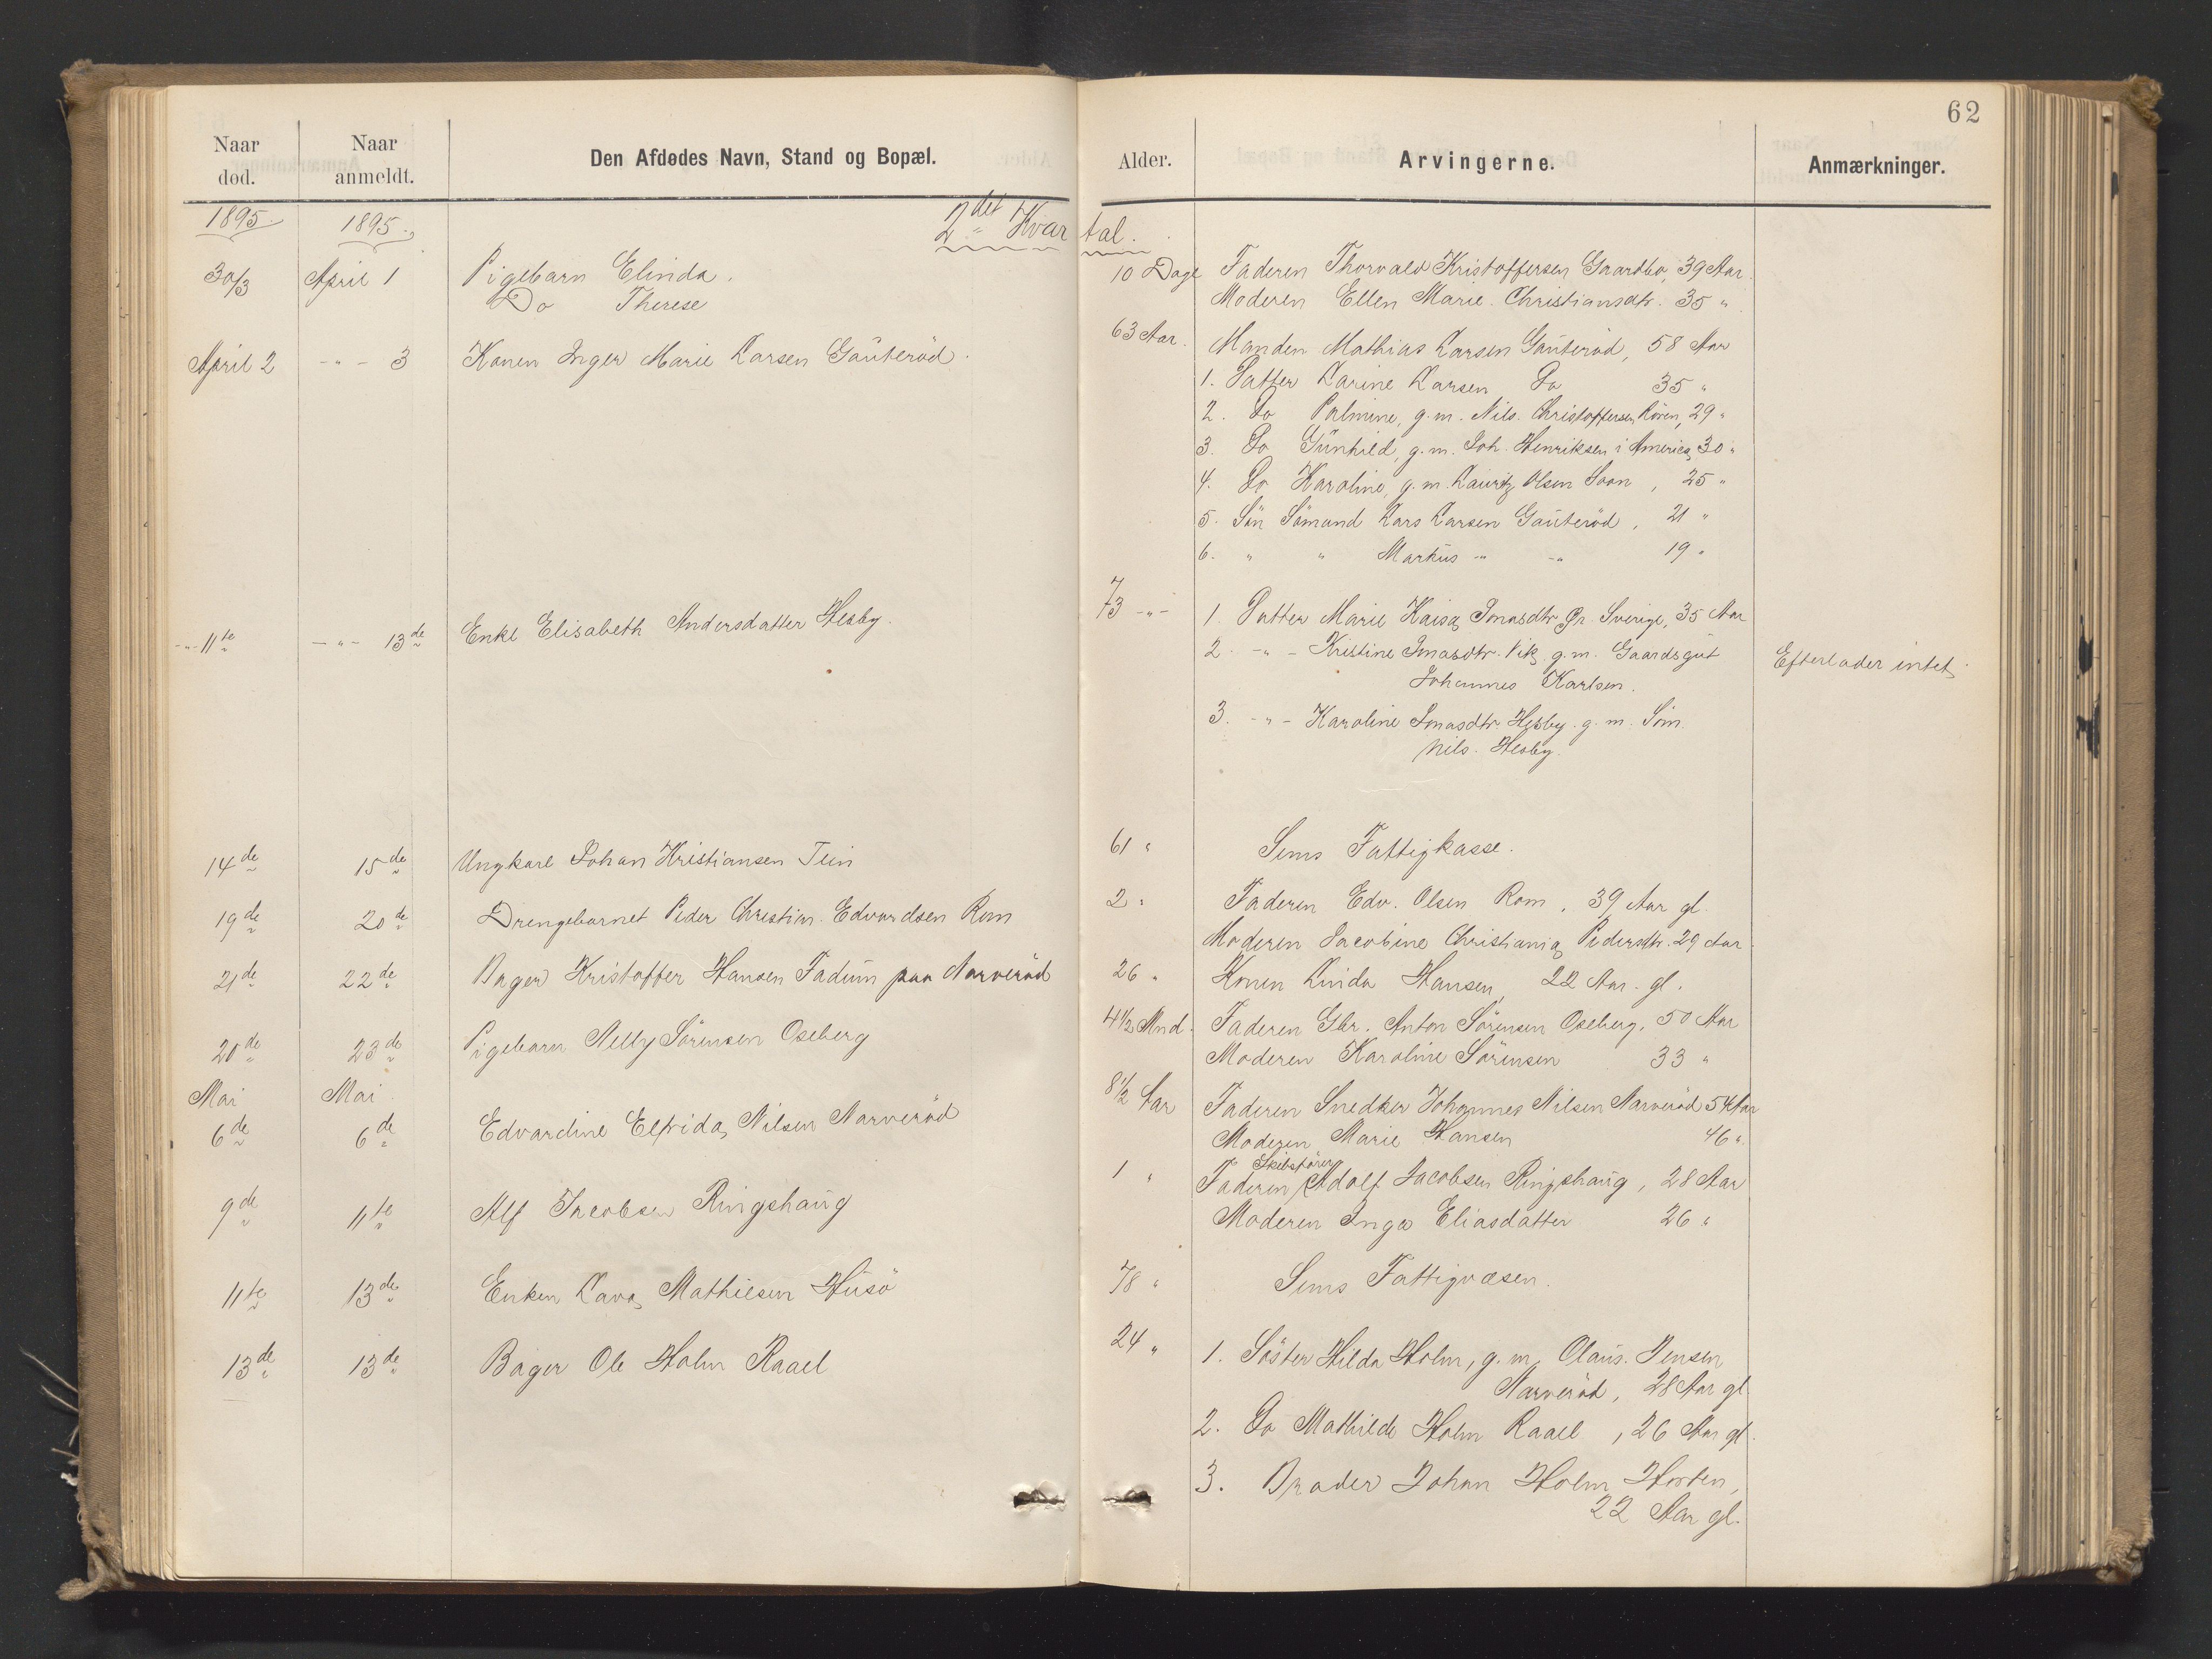 62
Naar død.
Naar anmeldt.
Den Afdødes Navn, Stand og Bopæl.
Alder.
Arvingerne.
Anmærkninger.
1895. 1895. 2det Kvartal.
30/3 April 1 Pigebarn Elinda. 10 Dage Faderen Thorvald Kristoffersen Gaardbo, 39 Aar.
Do Therese Moderen Ellen Marie Christiansdtr. 35 "
April 2 - " - 3 Konen Inger Marie Larsen Gaüteröd. 63 Aar. Manden Mathias Larsen Gaüteröd, 58 Aar
1. Datter Karine Larsen Do 35 "
2. Do Palmine, g. m. Nils Christoffersen Rören, 29 "
3. Do Günhild, g. m. Joh. Henriksen i America, 30 "
4. Do Karoline, g. m. Lauritz Olsen Soon, 25 "
5. Sön Sömand Lars Larsen Gaüteröd, 21 "
6. " " Marküs - " - " 19 "
- " - 11te - " - 13de Enke Elisabeth Andersdatter Hesby. 73 - " - 1. Datter Marie Kaisa Jonasdtr. Sverige, 35 Aar
2. - " - Kristine Jonasdtr. Vik, g. m. Gaardsgut Efterlader intet.
Johannes Karlsen.
3. - " - Karoline Jonasdtr. Hesby. g. m. Söm.
Nils. Hesby.
14de 15de Ungkarl Johan Kristiansen Tein 61 " Sems Fattigkasse.
19de 20de Drengebarnet Peder Christian Edvardsen Rom 2 " Faderen Edv. Olsen Rom, 39 Aar gl.
Moderen Jacobine Christiania Pedersdtr. 29 Aar
21de 22de Bager Kristoffer Hansen Fadüm paa Narveröd 26 " Konen Linda Hansen, 22 Aar gl.
20de 23de Pigebarn Nelly Sörensen Oseberg 4½ Mnd. Faderen Gbr. Anton Sörensen Oseberg, 50 Aar
Moderen Karoline Sörensen 33 "
Mai Mai
6de 6de Edvardine Elfrida Nilsen Narveröd 8½ Aar Faderen Snedker Johannes Nilsen Narveröd 54 Aar
Moderen Marie Hansen 46 "
Skibsförer
9de 11te Alf Jacobsen Ringshaüg 1 " Faderen Adolf Jacobsen Ringshaüg, 28 Aar
Moderen Inga Eliasdatter 26 "
11te 13de Enken Lava Mathiesen Hüsö 78 " Sems Fattigvæsen.
13de 13de Bager Ole Holm Raael 24 " 1. Söster Hilda Holm, g. m. Olaüs Jensen
Narveröd, 28 Aar gl.
2. Do Mathilde Holm Raael, 26 Aar gl.
3. Broder Johan Holm Horten,
22 Aar gl.